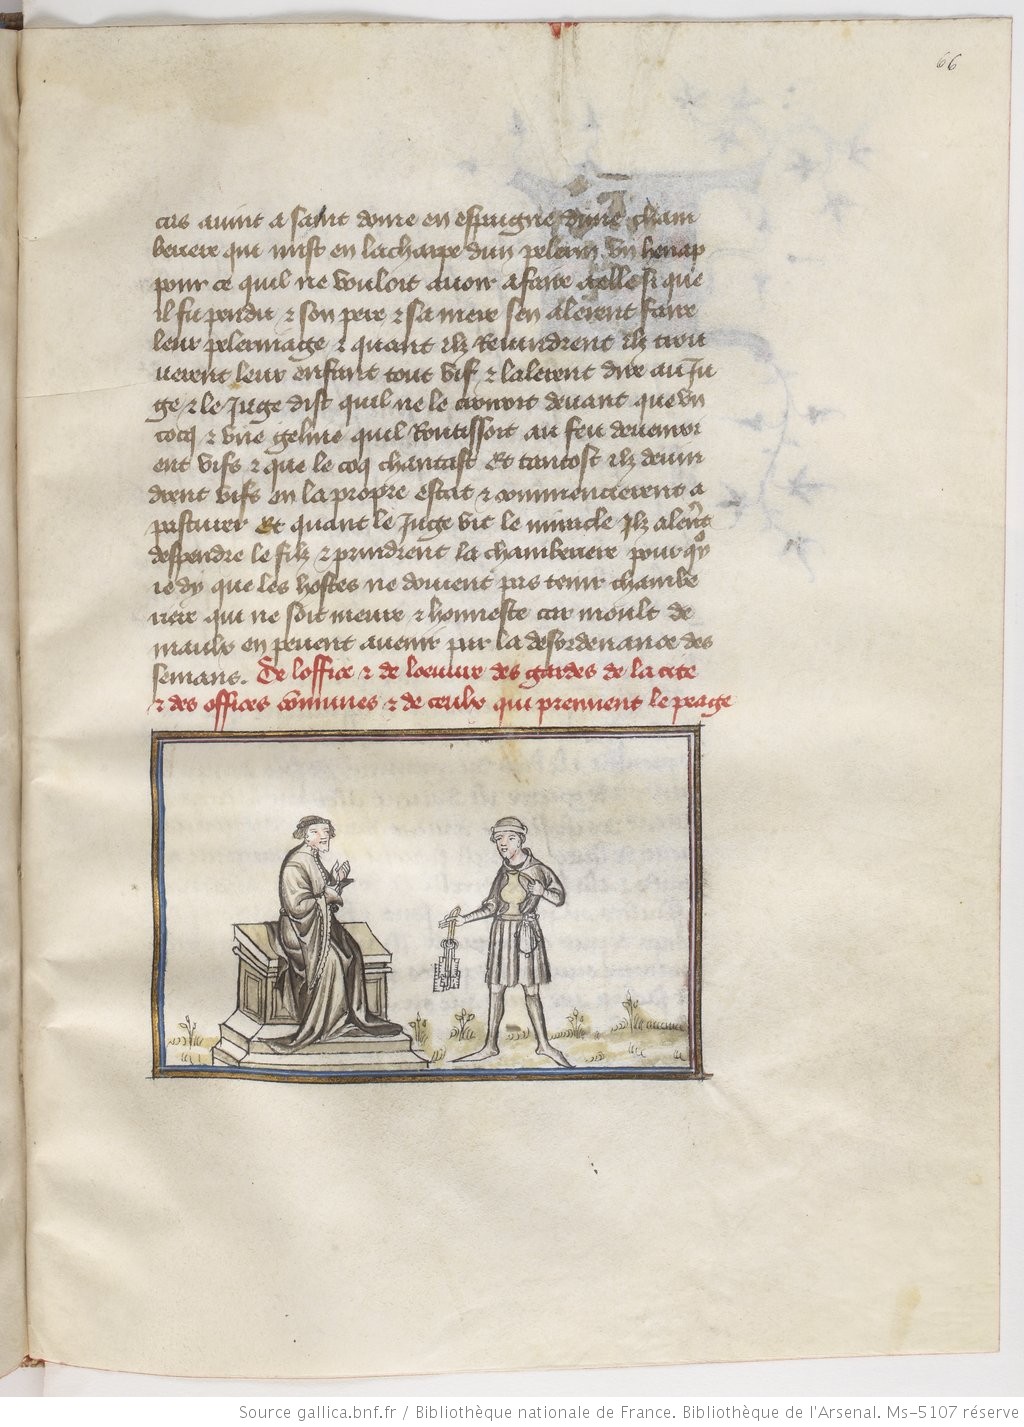 66
cas avint a saint dome en espaigne dune cham
beriere qui mist en lacharpe dun pelerin vn henap
pour ce quil ne vouloit auoir afaire aelle si que
il fu pendu & son pere & sa mere sen alerent faire
leur pelerinage & quant ilz Reuindrent ilz trou
uerent leur enfant tout vif & lalerent dire au Ju
ge & le Juge dist quil ne le croiroit deuant que vn
cocq & vne geline quil Routissoit au feu deuenroi
ent vifs & que le coq chantast Et tantost ilz deuin
drent vifs en la propre estat & commencierent a
pasturer Et quant le Juge vit le miracle Ilz alerẽt
despendre le filz & prindrent la chamberiere pourqͦy
ie dy que les hostes ne doiuent pas tenir chambe
riere qui ne soit meure & honneste car moult de
maulx en peuent auenir par la desordenance des
femans. De loffice & de loeuure des gardes de la cite
& des offices cõmunes & de ceulx qui prennent le peage
Source gallica.bnf.fr / Bibliothèque nationale de France. Bibliothèque de l'Arsenal. Ms-5107 réserve